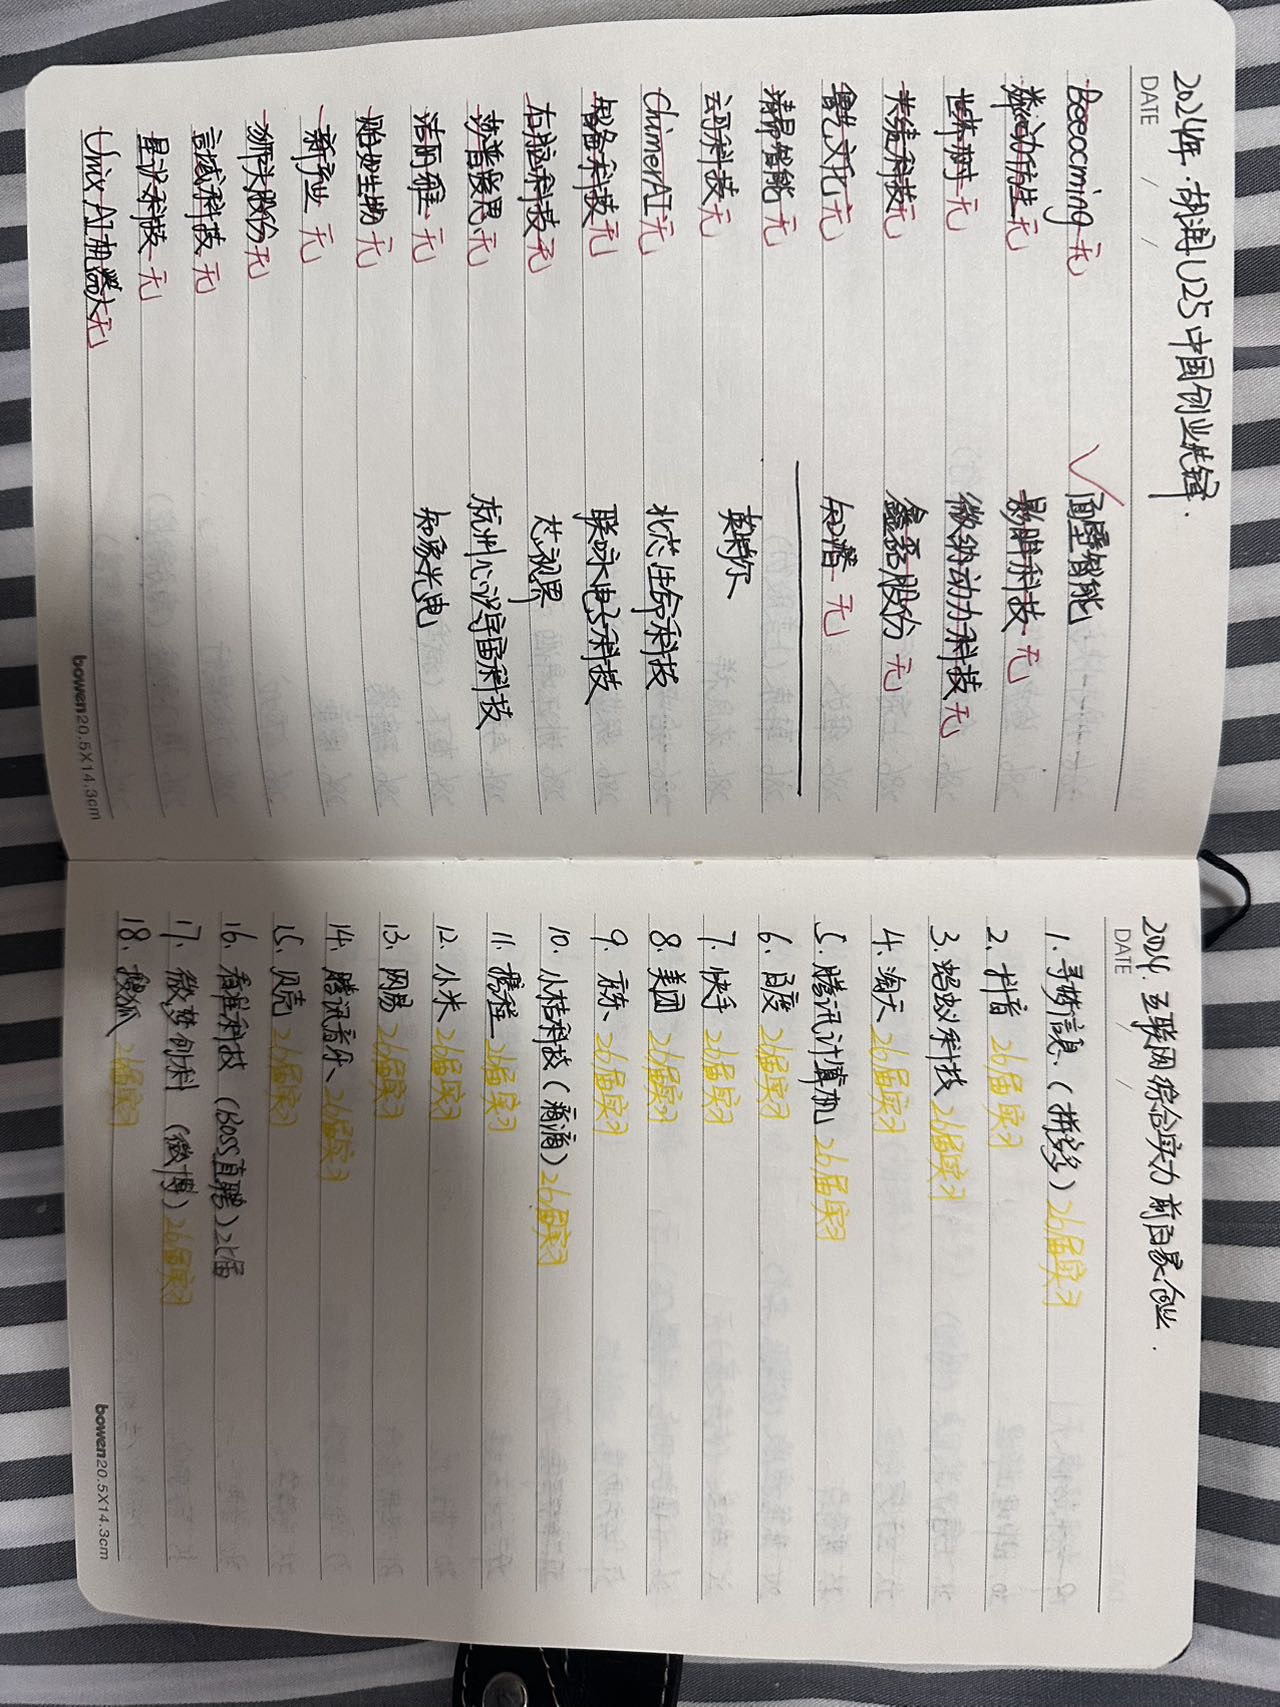 2024年·胡润U25中国创业先锋.
DATE / /
Beeocming 无
无
世界树 无
无
文化 无
清昂智能 无
科技 无
ChimerAI 无
智备科技 无
右脑科技 无
苏普 无
洁丽雅 无
贻如生物 无
新产业 无
狮头股份 无
言域科技 无
科技 无
Unix AI 机器人 无
面壁智能
影眸科技 无
微纳动力科技 无
鑫磊股份 无
知潜 无
英特尔
北芯生命科技
联咏电子科技
芯视界
杭州心 宇宙科技
知象光电
bowen20.5X14.3cm
2024. 互联网综合实力前百家企业.
DATE / /
1. 寻梦信息 (拼多多) 26届实习
2. 抖音 26届实习
3. 蚂蚁科技 26届实习
4. 淘天 26届实习
5. 腾讯计算机 26届实习
6. 百度 26届实习
7. 快手 26届实习
8. 美团 26届实习
9. 京东 26届实习
10. 小桔科技 (滴滴) 26届实习
11. 携程 26届实习
12. 小米 26届实习
13. 网易 26届实习
14. 腾讯音乐 26届实习
15. 贝壳 26届实习
16. 看准科技 (BOSS直聘) 26届
17. 微梦创科 (微博) 26届实习
18. 搜狐 26届实习
bowen20.5X14.3cm